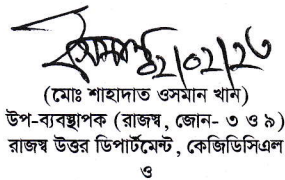 ০২/০২/২৩
(মোঃ শাহাদাত ওসমান খান)
উপ-ব্যবস্থাপক (রাজস্ব, জোন- ৩ ও ৯)
রাজস্ব উত্তর ডিপার্টমেন্ট, কেজিডিসিএল
ও